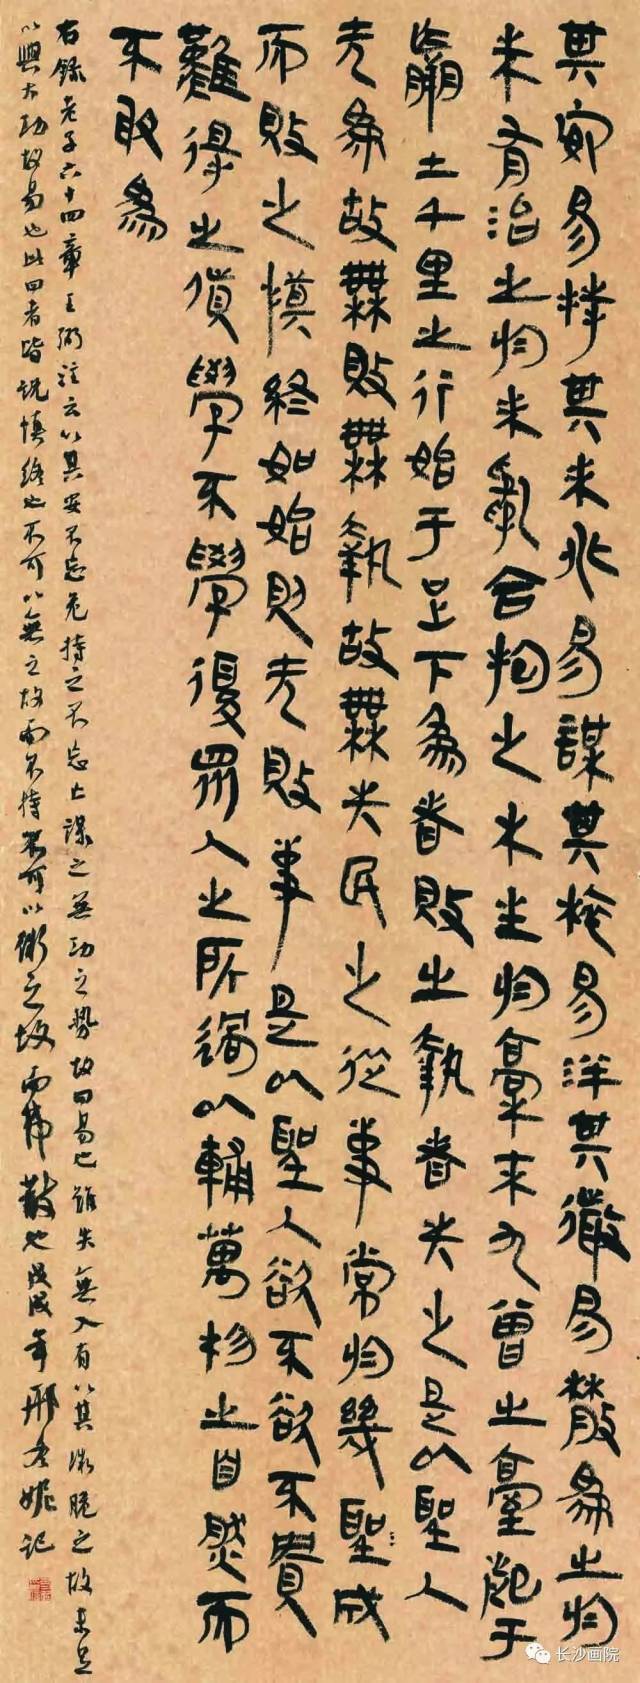 其安易持其未兆易謀其脆易泮其微易散為之於
未有治之於未亂合抱之木生於毫末九層之臺起于
羸土千里之行始于足下為者敗之執者失之是以聖人
无為故無敗無執故無失民之從事常於幾聖成
而敗之慎終如始則无敗事是以聖人欲不欲不貴
難得之貨學不學復眾人之所過以輔萬物之自然而
不敢為
右錄老子六十四章王弼註云以其安不忘危持之不忘亡謀之無功之勢故曰易也雖失無入有以其微脆之故未足
以興大功故易也此四者皆說慎終也不可以無之故而不持不可以微之故而弗散也戊戌年邢妮記
长沙画院